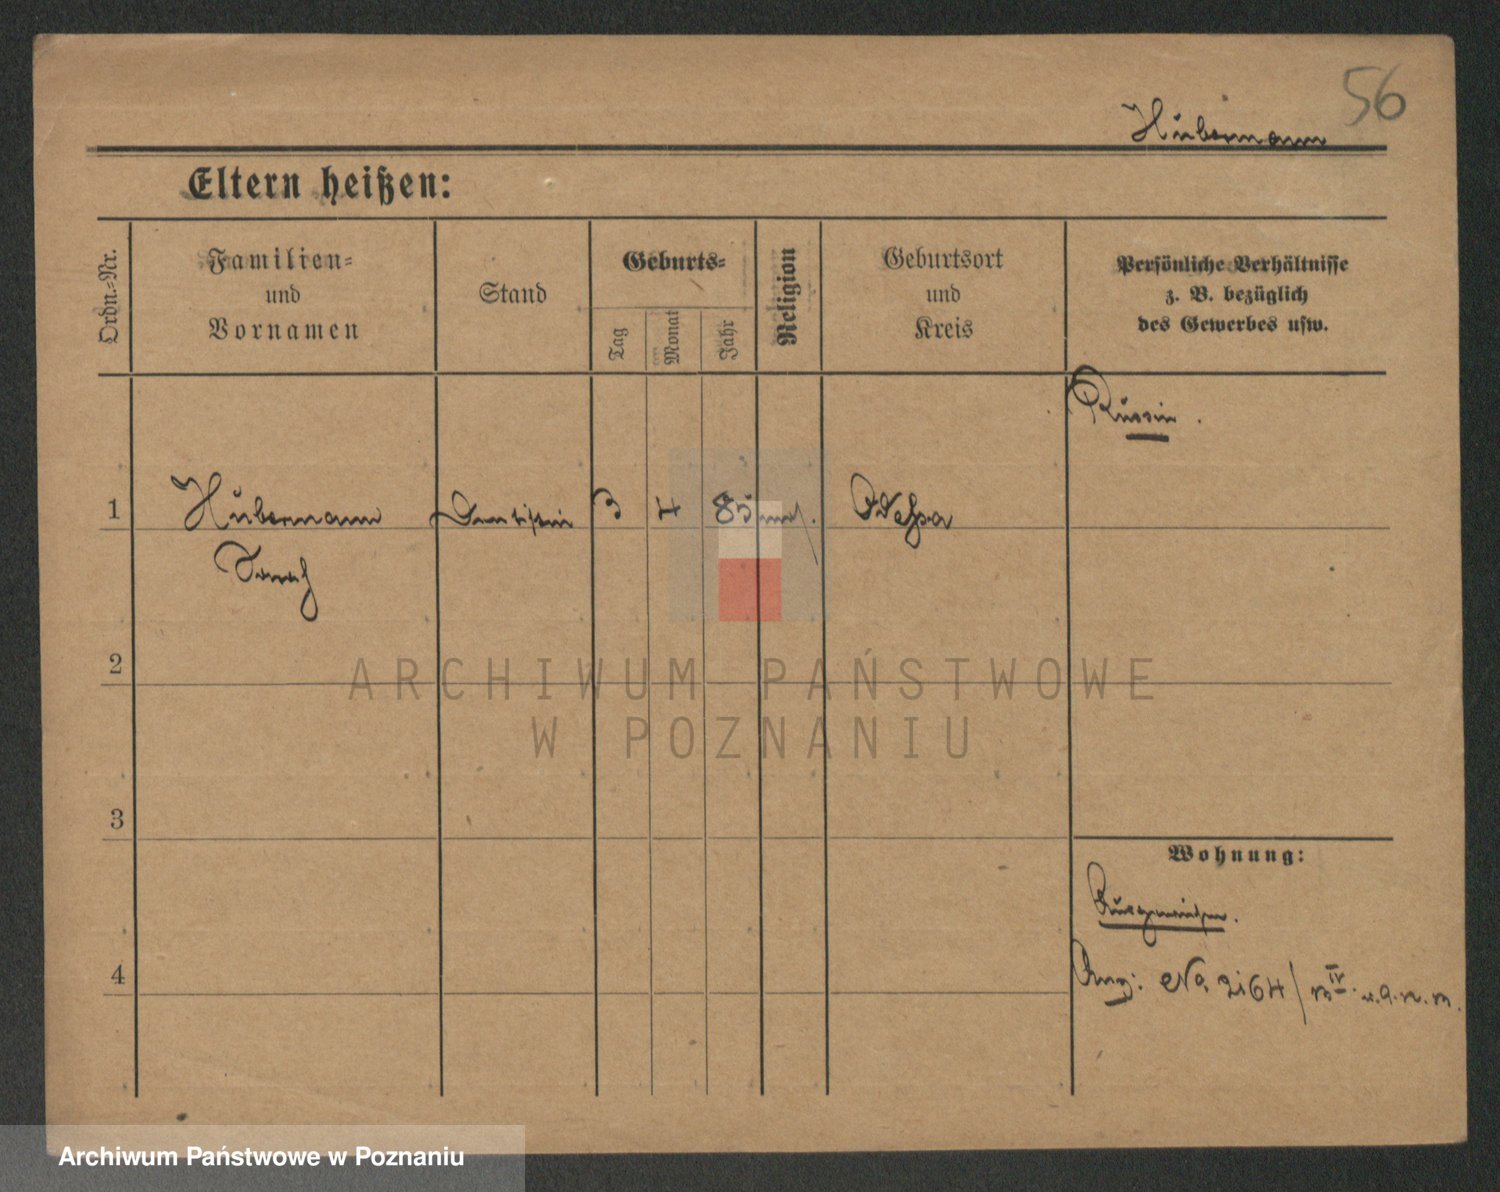 56
Hubermann
Eltern heißen:
Ordn.-Nr.
Familien-
und
Vornamen
Stand
Geburts-
Tag
Monat
Jahr
Religion
Geburtsort
und
Kreis
Persönliche Verhältnisse
z. B. bezüglich
des Gewerbes usw.
Russin.
1 Hubermann Dentistin 3 4 85 Odessa
Sarah
2
3
4
Wohnung:
No. 2164/
ARCHIWUM PAŃSTWOWE
W POZNANIU
Archiwum Państwowe w Poznaniu